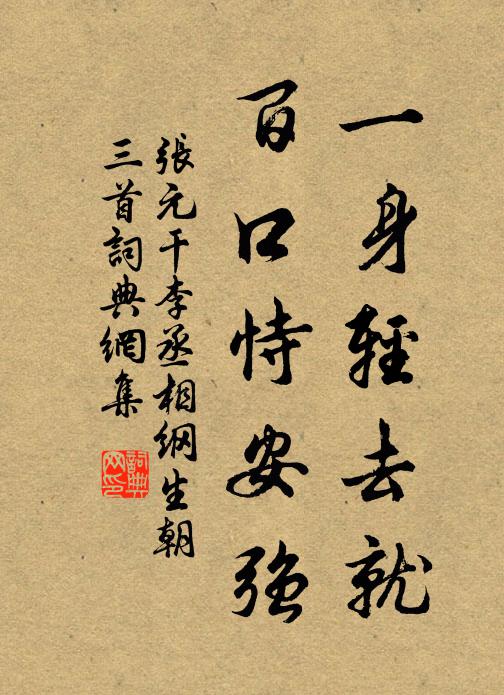 一身輕去就
百口恃安強
張元干李丞相綱生朝
三首詞典網集
詞典
网印